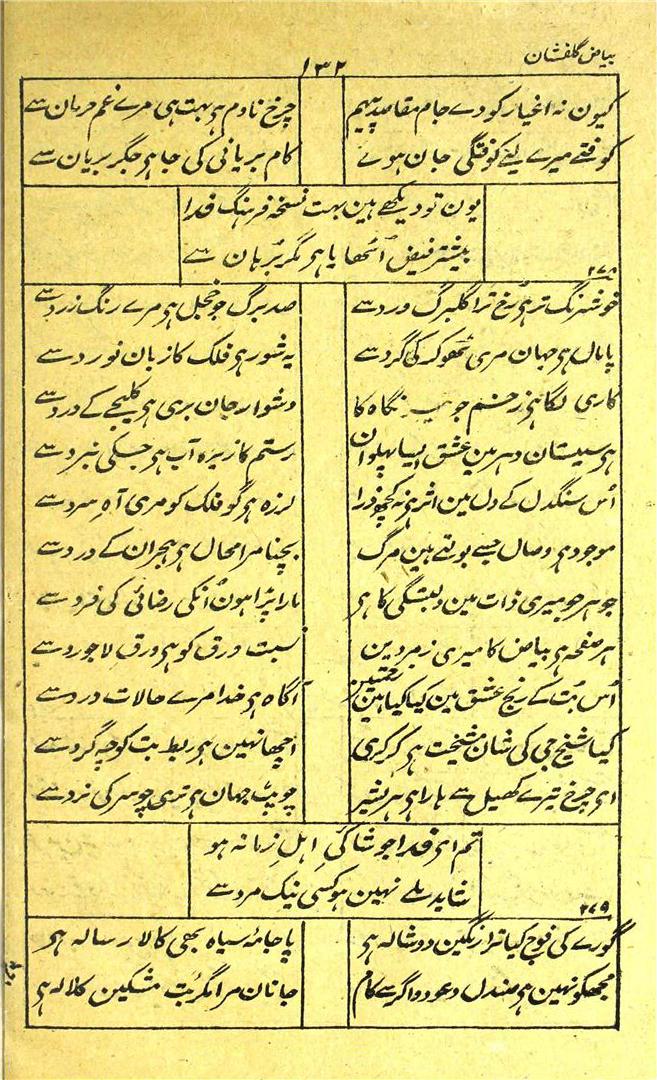 بیاض گلفشان
۱۳۲
کیون نہ اغیار کو دے جام مقاصد پیہم
چرخ نادم ہی بہت ہی مرے غم حرمان سے
کوفتے میرے لیے کوفتگی جان ہوے
کام بریانی کی جا ہی جگر بریان سے
یون تو دیکھے ہین بہت نسخہ فرہنگ فدا
بیشتر فیض اُٹھایا ہی مگر بُرہان سے
۲۷۸
خوشرنگ تر ہی رخ ترا گلبرگ ورد سے
صد برگ جو خجل ہی مرے رنگ زرد سے
پامال ہی جہان مری ٹھوکر کی گرد سے
یہ شور ہی فلک کا زبان نورد سے
کاری لگا ہی زخم جو تیر نگاہ کا
دشوار جان بری ہی کلیجے کے درد سے
ہی سیستان دہر مین عشق ایسا پہلوان
رستم کا زہرہ آب ہی جسکی نبرد سے
اُس سنگدل کے دل مین اثر ہی نہ کچھ ذرا
لرزہ ہی گو فلک کو مری آہ سرد سے
موجود ہی وصال جسے بولتے ہین مرگ
بچنا مرا محال ہی ہجران کے درد سے
جوہر جو میری ذات مین دلبستگی کا ہی
مارا پڑا ہون اُنکی رضائی کی فرد سے
ہر صفحہ ہی بیاض کا میری زمردین
نسبت ورق کو ہی ورق لاجورد سے
اُس بُت کے رنج عشق مین کیا کیا ہین
آگاہ ہی خدا مرے حالات درد سے
کیا شیخ جی کی شان مشیخت ہی کرکری
اچھا نہین ہی ربط بت کوچہ گرد سے
ای چرخ تیرے کھیل سے ہارا ہی ہر بشر
چوپٹ جہان ہی تری چوسر کی نرد سے
تم ای فدا جو شاکی اہل زمانہ ہو
شاید ملے نہین ہو کسی نیک مرد سے
۲۷۹
گورے کی فوج کیا ترا رنگین دوشالہ ہی
پاجامۂ سیاہ بھی کالا رسالہ ہی
مجھکو نہین ہی صندل و عود و اگر سے کام
جانان مرا مگر بُت مشکین کلالہ ہی